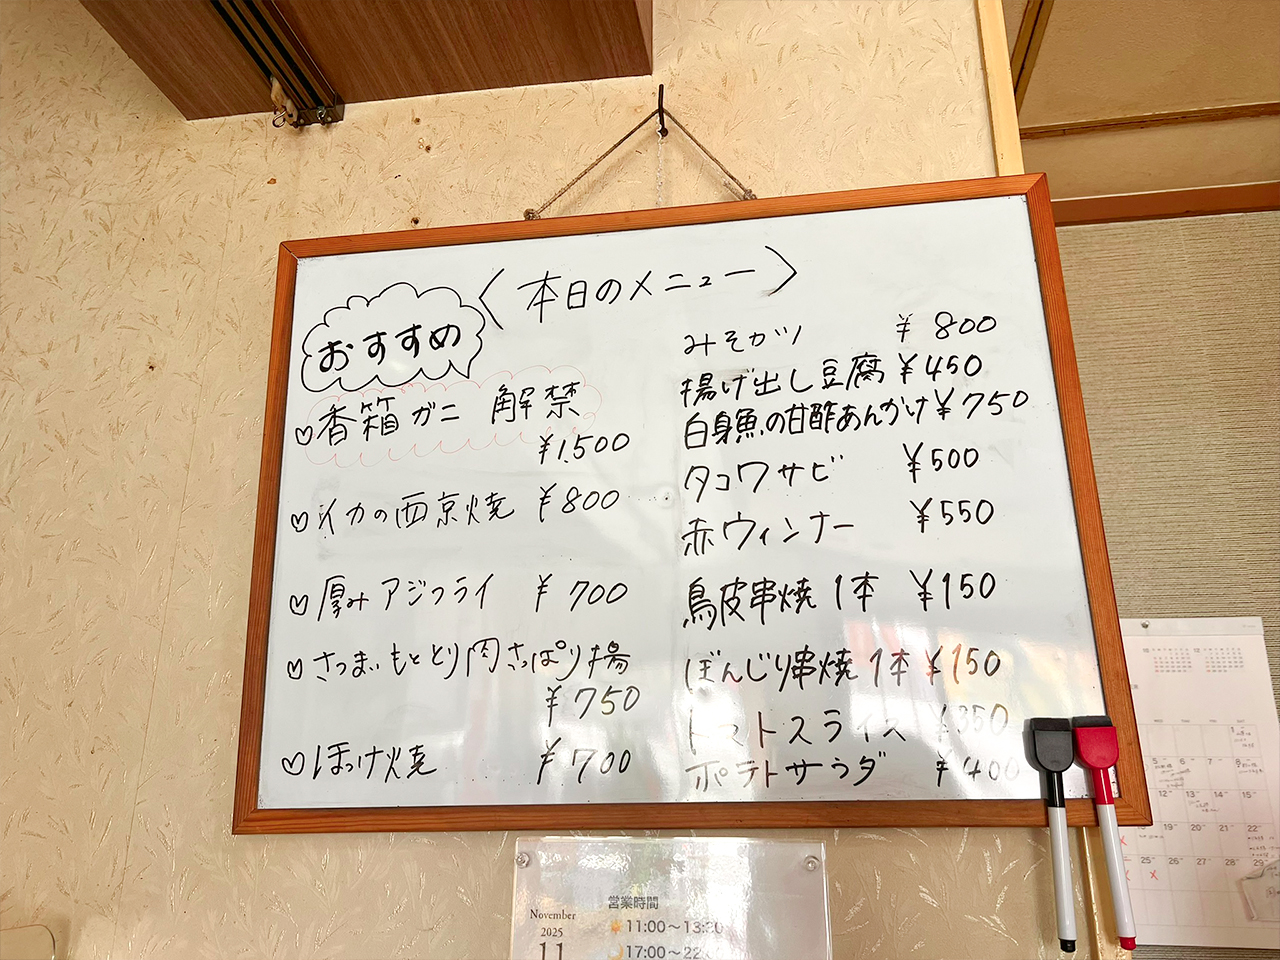 〈本日のメニュー〉
おすすめ
♡香箱ガニ 解禁
¥1,500
♡イカの西京焼 ¥800
♡厚みアジフライ ¥700
♡さつまいもととり肉さっぱり揚
¥750
♡ほっけ焼 ¥700
みそカツ ¥800
揚げ出し豆腐 ¥450
白身魚の甘酢あんかけ ¥750
タコワサビ ¥500
赤ウィンナー ¥550
鳥皮串焼 1本 ¥150
ぼんじり串焼 1本 ¥150
トマトスライス ¥350
ポテトサラダ ¥400
November
2025
11
営業時間
11:00～13:30
17:00～22
5 6 7 8
12 13 14 15
19 20 21 22
25 26 27 28 29